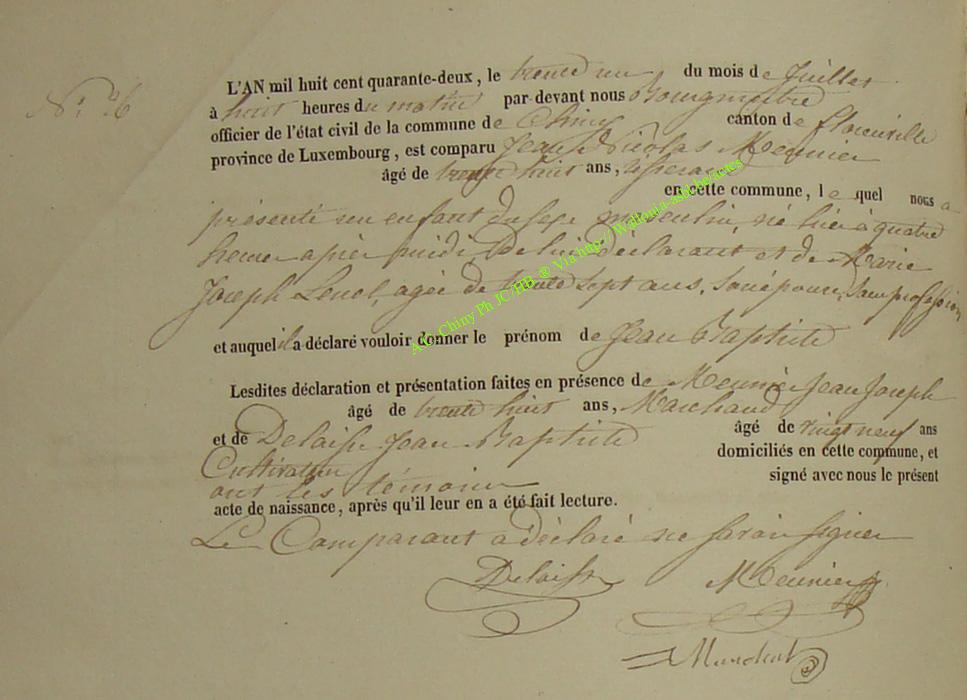 N.° 26
L'AN mil huit cent quarante-deux, le trente un du mois de Juillet
à huit heures du matin par-devant nous Bourgmestre
officier de l'état civil de la commune de Chiny canton de florenville
province de Luxembourg, est comparu Jean Nicolas Meunier
âgé de trente huit ans, tisserand
en cette commune, le quel nous a
présenté un enfant du sexe masculin, né hier à quatre
heures après midi De lui déclarant et de Marie
Joseph agée de trente sept ans, son épouse, sans profession
et auquel il a déclaré vouloir donner le prénom de Jean Baptiste
Lesdites déclaration et présentation faites en présence de Meunier Jean Joseph
âgé de trente huit ans, Marchand
et de Delaisse Jean Baptiste âgé de vingt neuf ans
Cultivateur domiciliés en cette commune, et
ont les témoins signé avec nous le présent
acte de naissance, après qu'il leur en a été fait lecture.
Le Comparant a déclaré ne savoir signer
Delaisse Meunier JJ
A.C. Chiny Ph JC/HB @ Via http://Wallonia-asbl.be/actes